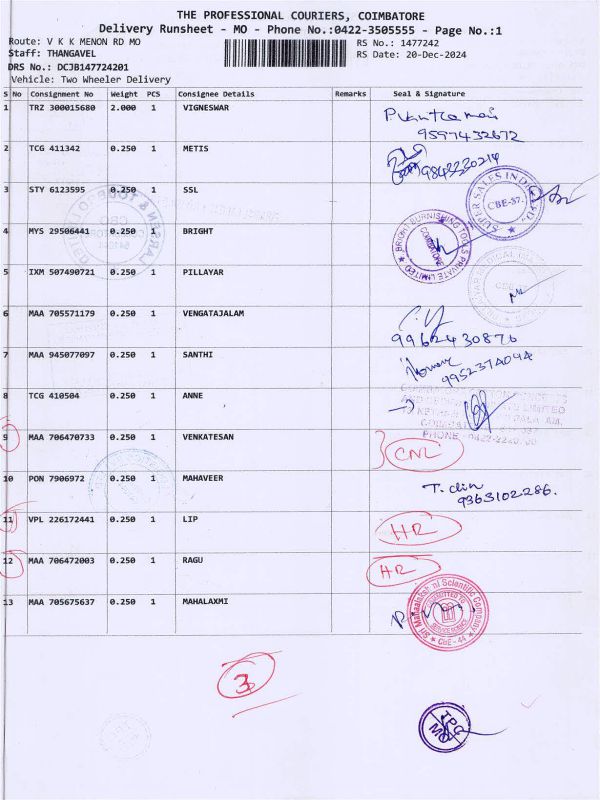 THE PROFESSIONAL COURIERS, COIMBATORE
Delivery Runsheet - MO - Phone No.:0422-3505555 - Page No.:1
Route: V K K MENON RD MO
RS No.: 1477242
Staff: THANGAVEL
RS Date: 20-Dec-2024
DRS No.: DCJB147724201
Vehicle: Two Wheeler Delivery
S No Consignment No Weight PCS Consignee Details Remarks Seal & Signature
1 TRZ 300015680 2.000 1 VIGNESWAR
9597432672
2 TCG 411342 0.250 1 METIS 9843330214
3 STY 6123595 0.250 1 SSL
SUPER SALES INDIA
CBE-37
4 MYS 29506441 0.250 1 BRIGHT
BRIGHT BURNISHING TOOLS PRIVATE LIMITED
COIMBATORE
5 IXM 507490721 0.250 1 PILLAYAR
6 MAA 705571179 0.250 1 VENGATAJALAM
9962430876
7 MAA 945077097 0.250 1 SANTHI
9952374094
8 TCG 410504 0.250 1 ANNE
9 MAA 706470733 0.250 1 VENKATESAN CNL
10 PON 7906972 0.250 1 MAHAVEER
9363102286.
11 VPL 226172441 0.250 1 LIP HR
12 MAA 706472003 0.250 1 RAGU HR
13 MAA 705675637 0.250 1 MAHALAXMI
Sri Mahaalakshmi Scientific Company
CBE-44
3
TPC
MO